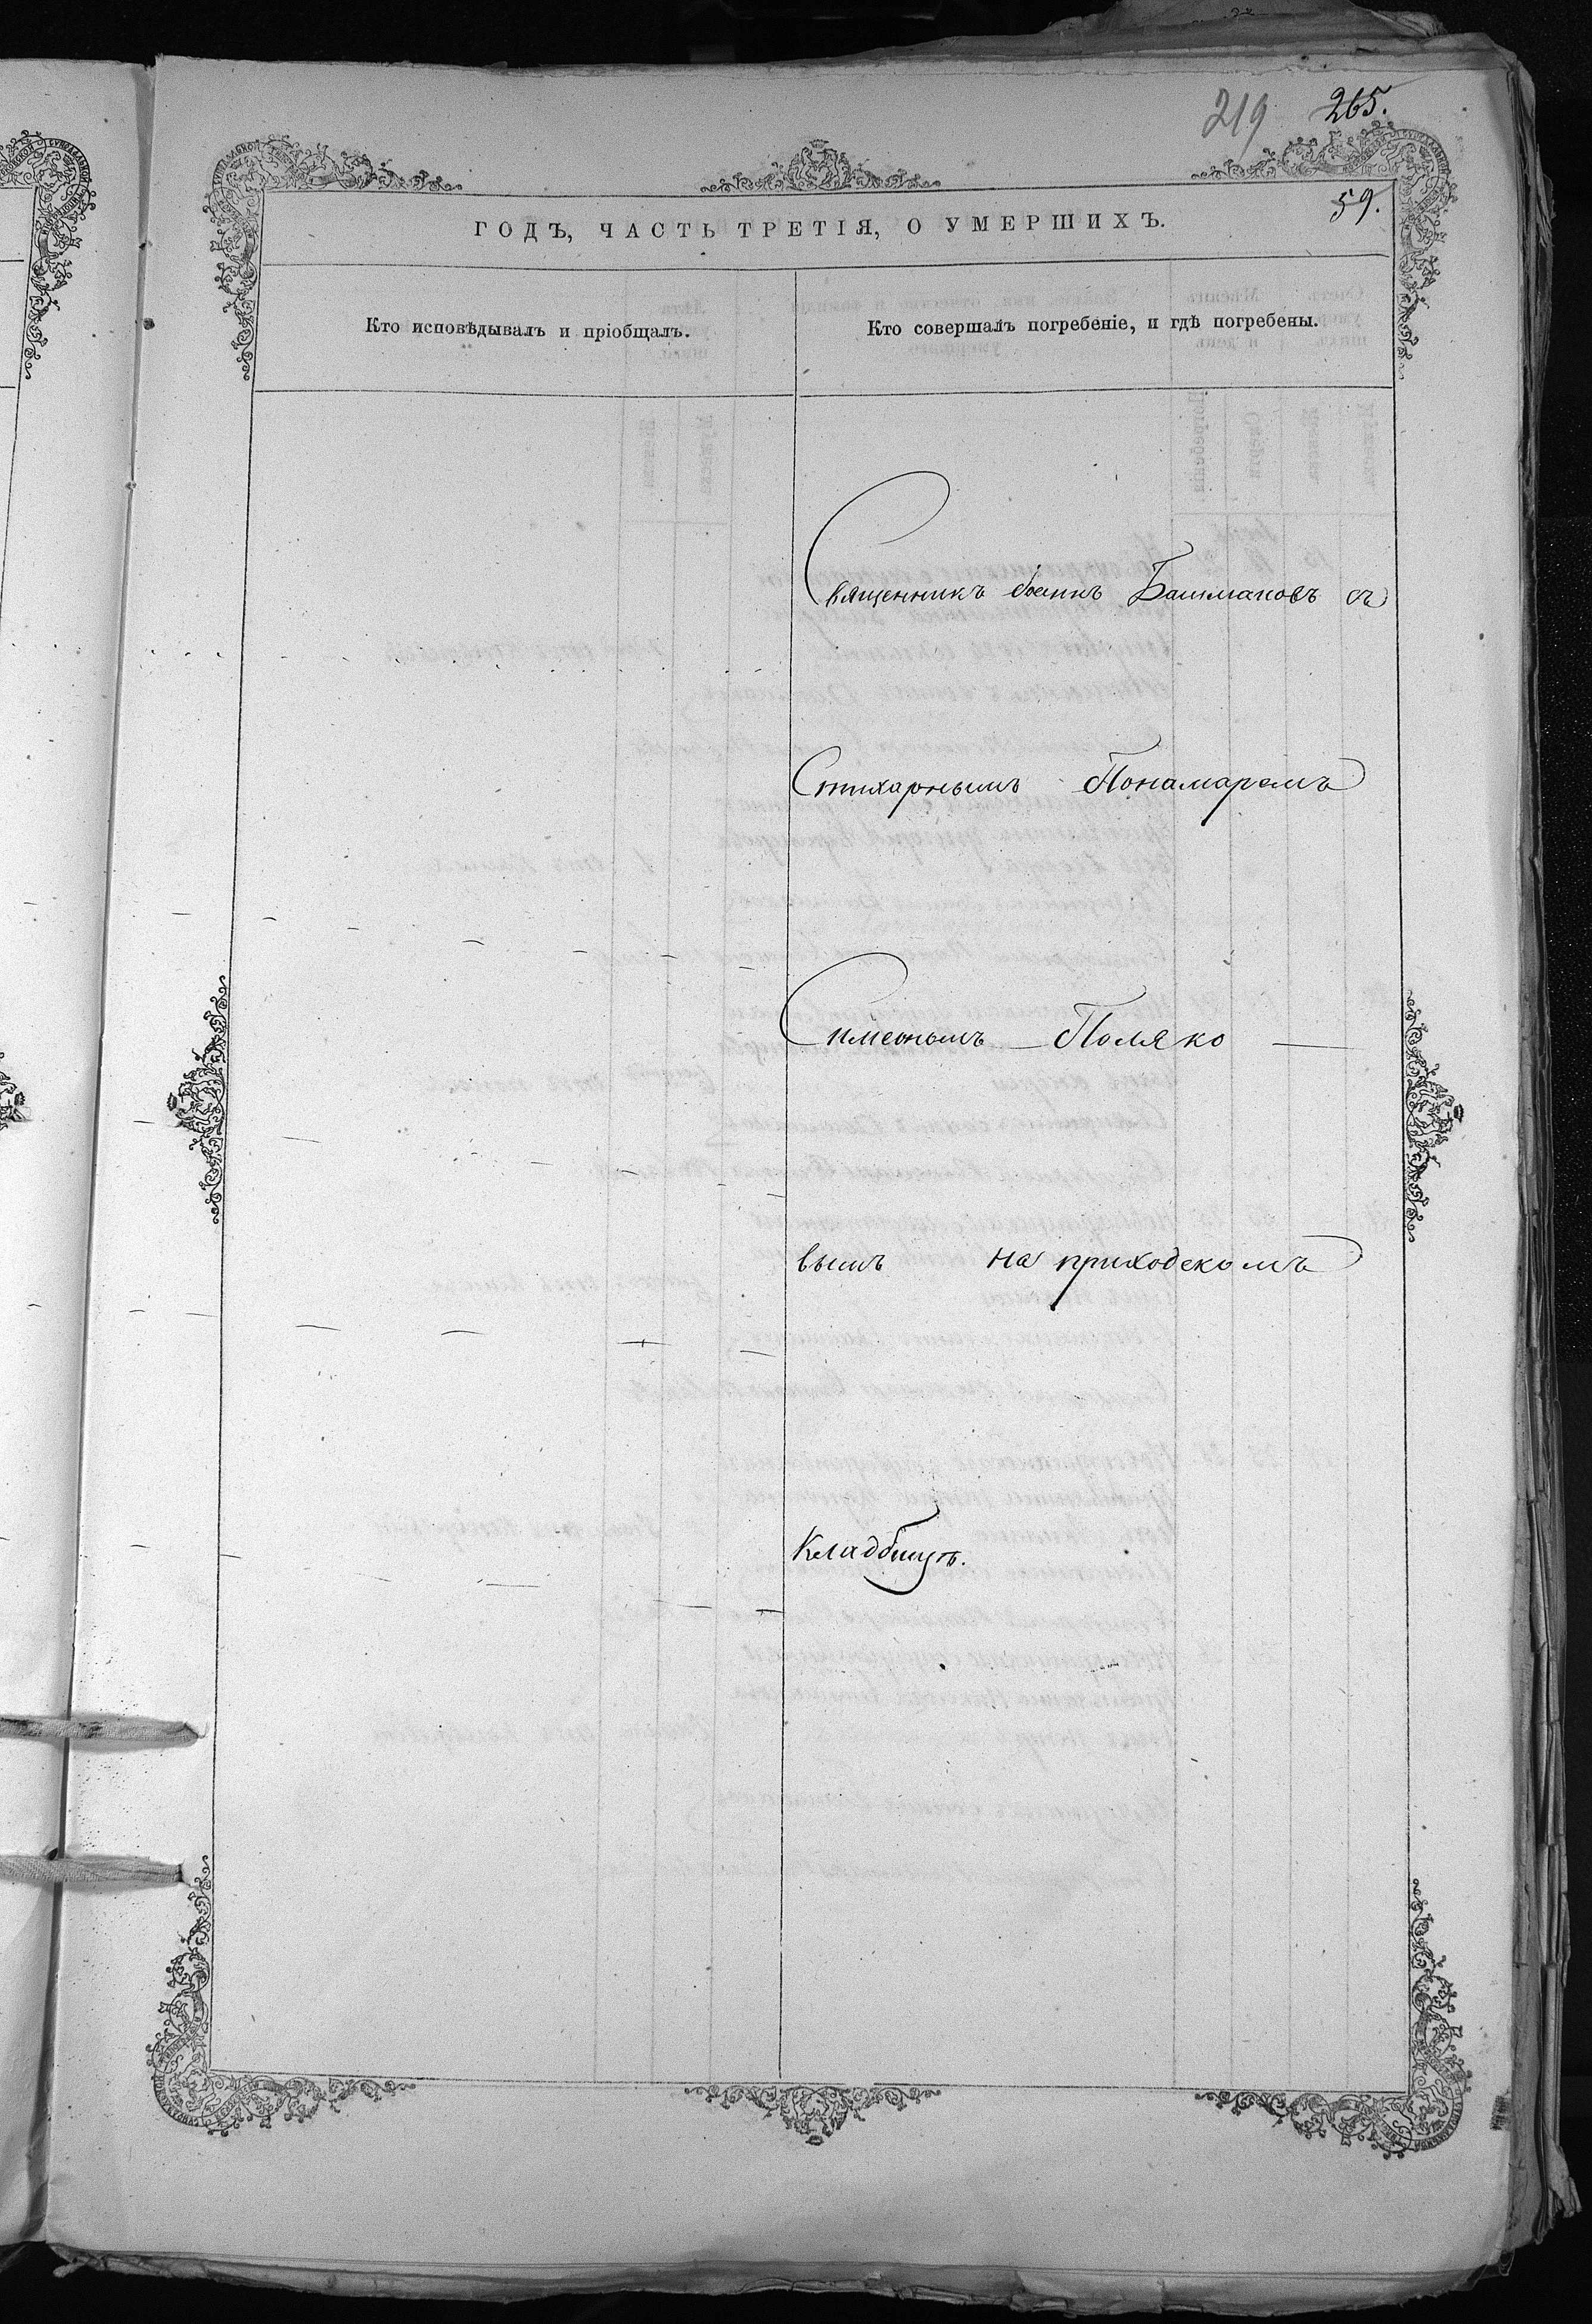 219 265.
59.
ГОДЪ, ЧАСТЬ ТРЕТІЯ, О УМЕРШИХЪ.
Кто исповѣдывалъ и пріобщалъ.
Кто совершалъ погребеніе, и гдѣ погребены.
Священникъ Іоаннъ Башмаковъ съ
Стихарнымъ Понамаремъ
Симеономъ Поляко
вымъ на приходскомъ
Кладбищѣ.